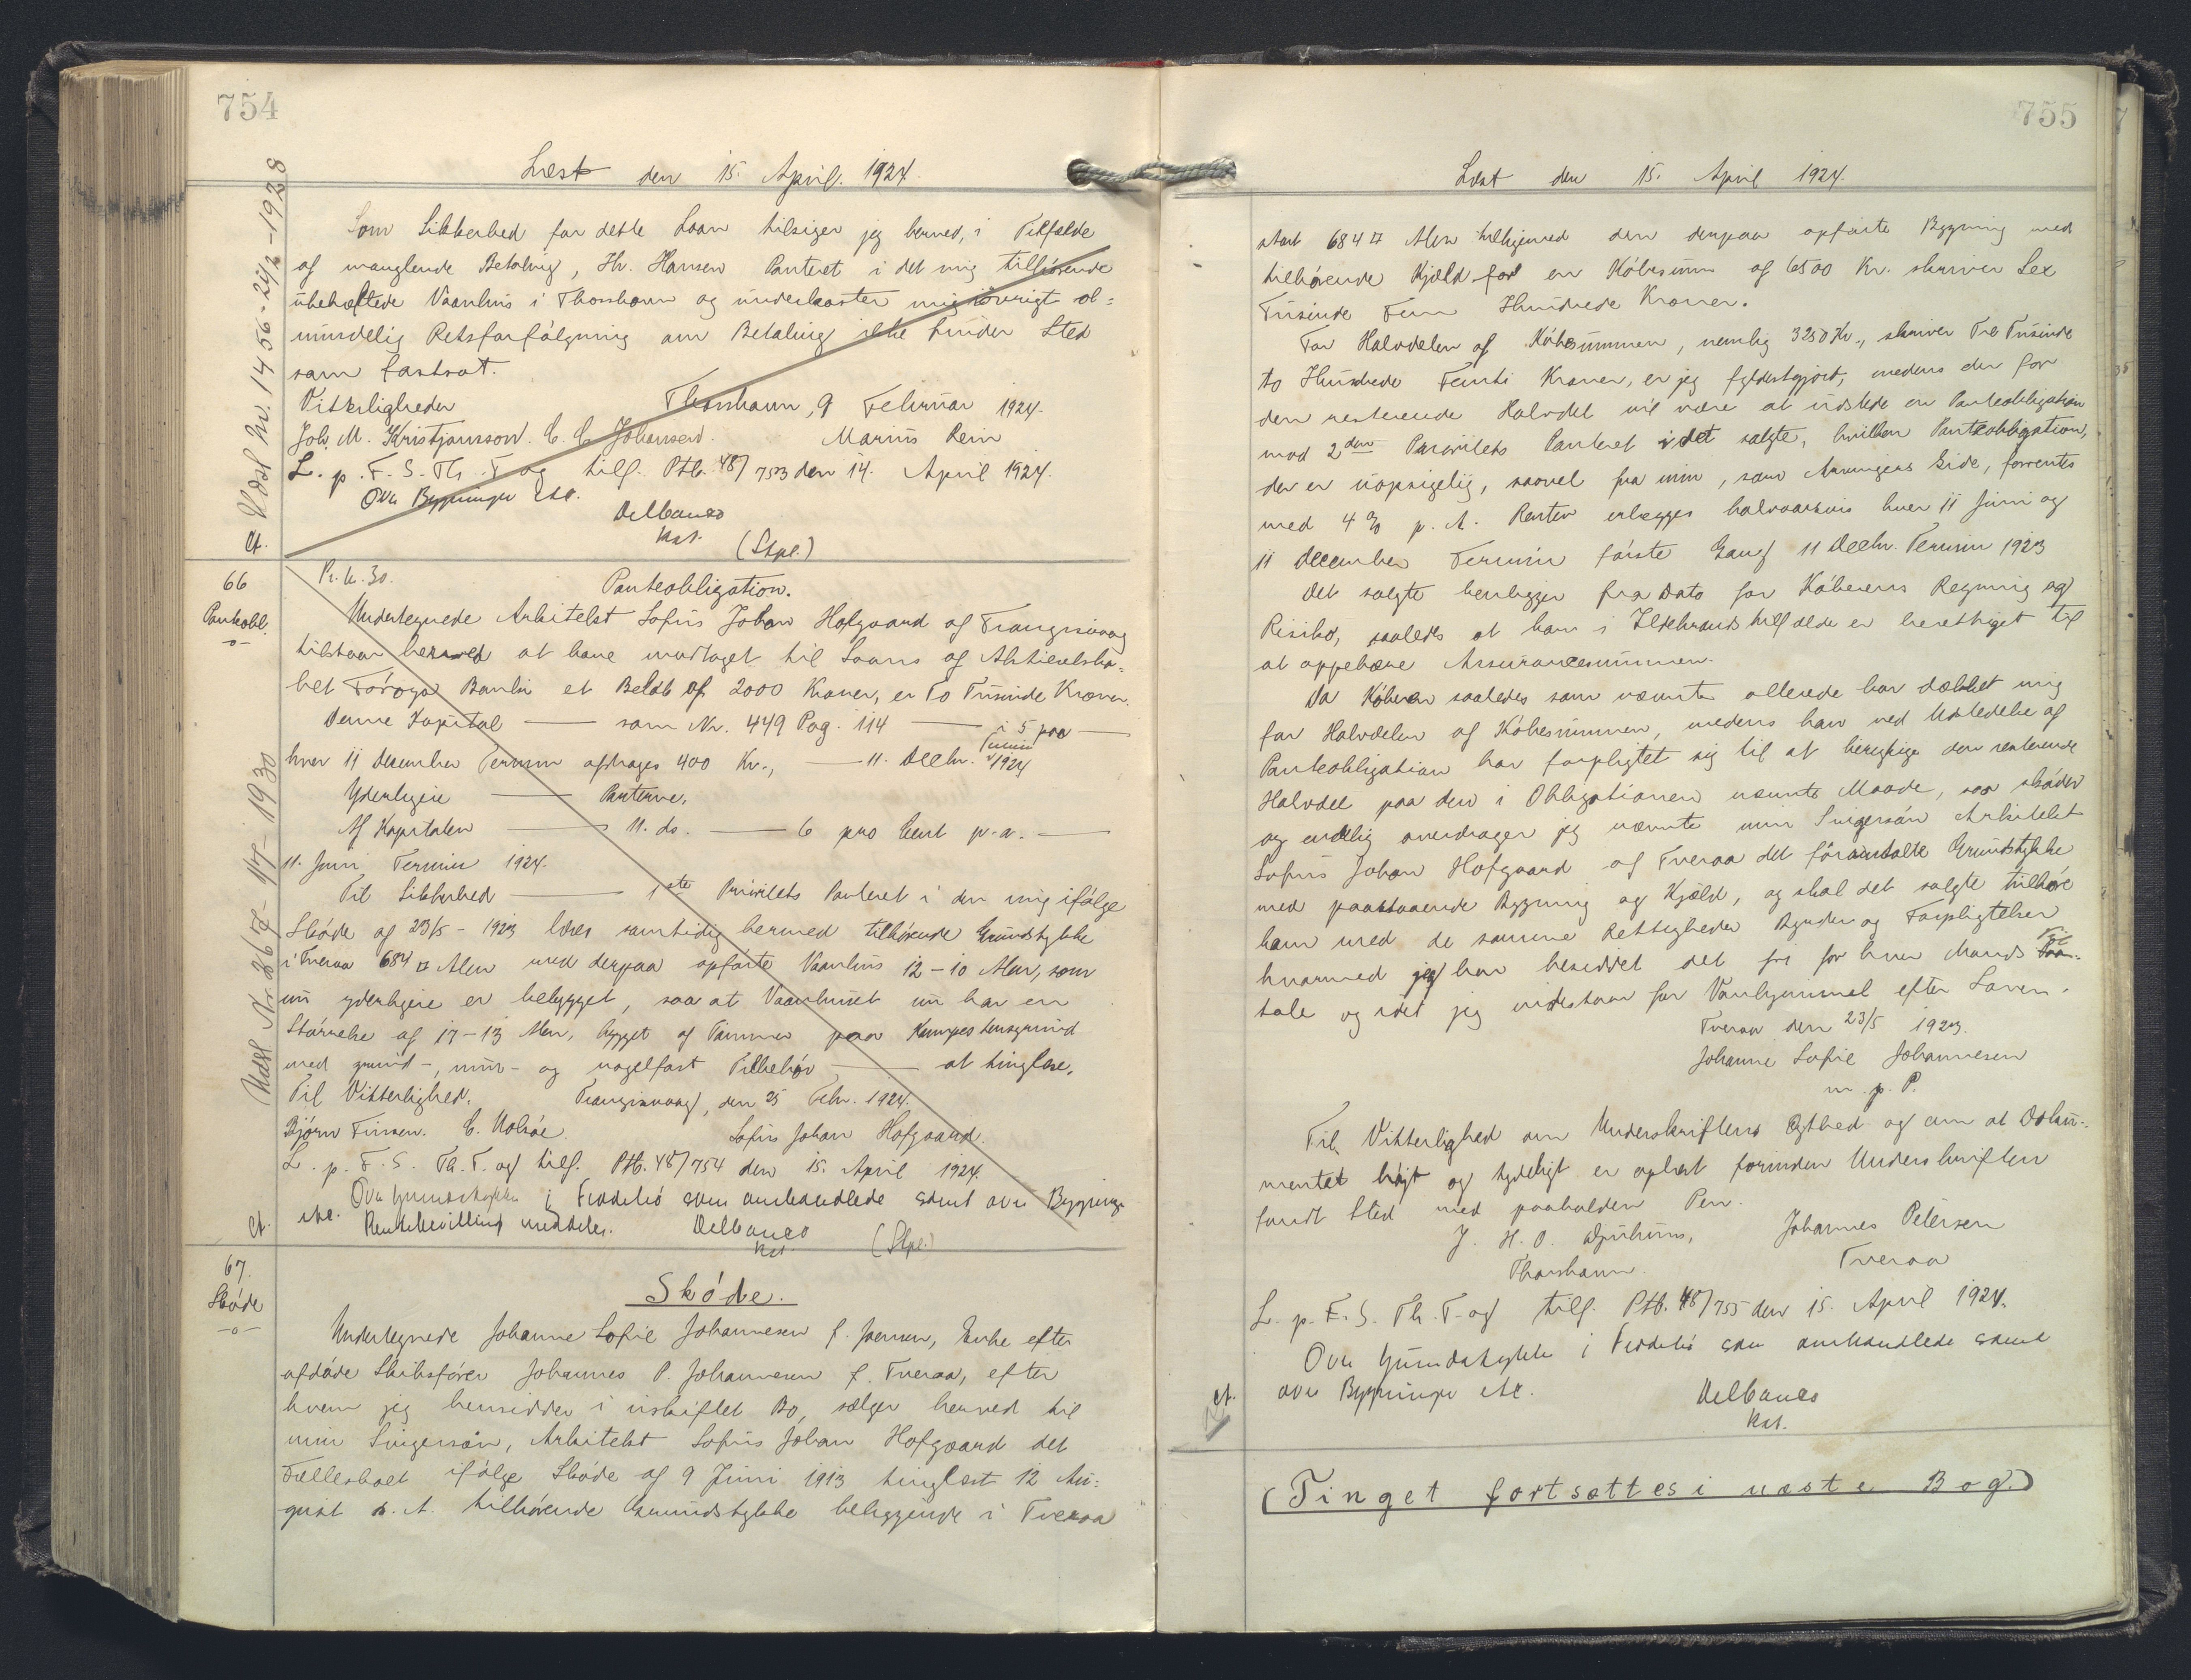 754
Læst den 15. April. 1924.
Som Sikkerhed for dette Laan tilsiger jeg herved, i Tilfælde
af manglende Betaling, Hr. Hansen Panteret i det mig tilhørende
ubehæftede Vaanhus i Thorshavn og underkaster mig iøvrigt al=
mindelig Retsforfølgning om Betaling ikke finder Sted
som fastsat.
Thorshavn, 9 Februar 1924.
Vitterligheder
Joh. M. Kristjansson. C. C. Johansen. Marius Rein
L. p. F. S. Th. T og tilf. Ptb. 48/753 den 14. April 1924.
Ova Bygninger etc.
Delbanco
Kst.
(Stpl.)
Ct. Udsl Nr. 1456-24/2-1928
66
Panteobl.
Pr. k. 30.
Panteobligation.
Undertegnede Arkitekt Sofus Johan Hofgaard af Trangisvaag
tilstaar herved at have modtaget til Laans af Aktieselska=
bet Føroya Banki et Beløb af 2000 Kroner, er To Tusinde Kroner.
Denne Kapital — som Nr. 449 Pag. 114 — i 5 paa —
hver 11 December Termin afdrages 400 Kr., — 11. Decbr. Termin 1924
Yderligere — Panterne.
Af Kapitalen — 11. do. — 6 pro Cent p.a. —
11. Juni Termin 1924.
Til Sikkerhed — 1ste Prioritets Panteret i den mig ifølge
Skøde af 23/5 - 1923 læses samtidig hermed tilhørende Grundstykke
i Tveraa 684 □ Alen med derpaa opførte Vaanhus 12-10 Alen, som
nu yderligere er bebygget, saa at Vaanhuset nu har en
Størrelse af 17-13 Alen, bygget af Tømmer paa Kampestensgrund
med grund-, mur- og nagelfast Tilbehør — at tinglæse.
Til Vitterlighed. Trangisvaag, den 25 Febr. 1924.
Björn Finsen. C. Nolsøe. Sofus Johan Hofgaard.
L. p. F. S. Th. T. og tilf. Ptb. 48/754 den 15. April 1924.
Ova Grundstykke i Frodebø som omhandlede samt ova Bygninger
etc. Rentebevilling meddeles. Delbanco
Kst. (Stpl.)
Ct. Udsl Nr. 2657- 1/7- 1930
67.
Skøde
Skøde.
Undertegnede Johanne Sofie Johannesen f. Joensen, Enke efter
afdøde Skibsfører Johannes P. Johannesen f. Tveraa, efter
hvem jeg hensidder i uskiftet Bo, sælger herved til
min Svigersøn, Arkitekt Sofus Johan Hofgaard det
Fællesboet ifølge Skøde af 9 Juni 1913 tinglæst 12 Au=
gust s. A. tilhørende Grundstykke beliggende i Tveraa
755
Læst den 15. April 1924.
stort 684 □ Alen tilligemed den derpaa opførte Bygning med
tilhørende Kjæld for en Købesum af 6500 Kr. skriver Sex
Tusinde Fem Hundrede Kroner.
For Halvdelen af Købesummen, nemlig 3250 Kr., skriver Tre Tusinde
to Hundrede Femti Kroner, er jeg fyldestgjort, medens der for
den resterende Halvdel vil være at udstede en Panteobligation
mod 2den Prioritets Panteret i det solgte, hvilken Panteobligation,
der er uopsigelig, saavel fra min, som Arvingers Side, forrentes
med 4 % p. A. Renten erlægges halvaarsvis hver 11 Juni og
11 December Termin første Gang 11 Decbr. Termin 1923
Det solgte henligger fra Dato for Køberens Regning og
Risiko, saaledes at han i Ildebrandstilfælde er berettiget til
at oppebære Assurancesummen.
Da Køberen saaledes som nævnt allerede har dækket mig
for Halvdelen af Købesummen, medens han ved Udstedelse af
Panteobligation har forpligtet sig til at berigtige den resterende
Halvdel paa den i Obligationen nævnte Maade, saa skøder
og endelig overdrager jeg nævnte min Svigersøn Arkitekt
Sofus Johan Hofgaard af Tveraa det foromtalte Grundstykke
med paastaaende Bygning og Kjæld, og skal det solgte tilhøre
ham med de samme Rettigheder Byrder og Forpligtelser
hvormed jeg har besiddet det fri for hver Mands Til-
tale og idet jeg indestaar for Vanhjemmel efter Loven.
Tveraa den 23/5 1923.
Johanne Sofie Johannesen
m. p. P.
Til Vitterlighed om Underskriftens Ægthed og om at Doku-
mentet højt og tydeligt er oplæst forinden Underskriften
fandt Sted med paaholden Pen.
J. H. O. Djurhuus, Johannes Petersen
Thorshavn. Tveraa
L. p. F. S. Th. T. og tilf. Ptb. 48/755 den 15. April 1924.
Ova Grundstykke i Frodebø som omhandlede samt
Ct. ova Bygninger etc. Delbanco
Kst.
(Tinget fortsættes i næste Bog.)